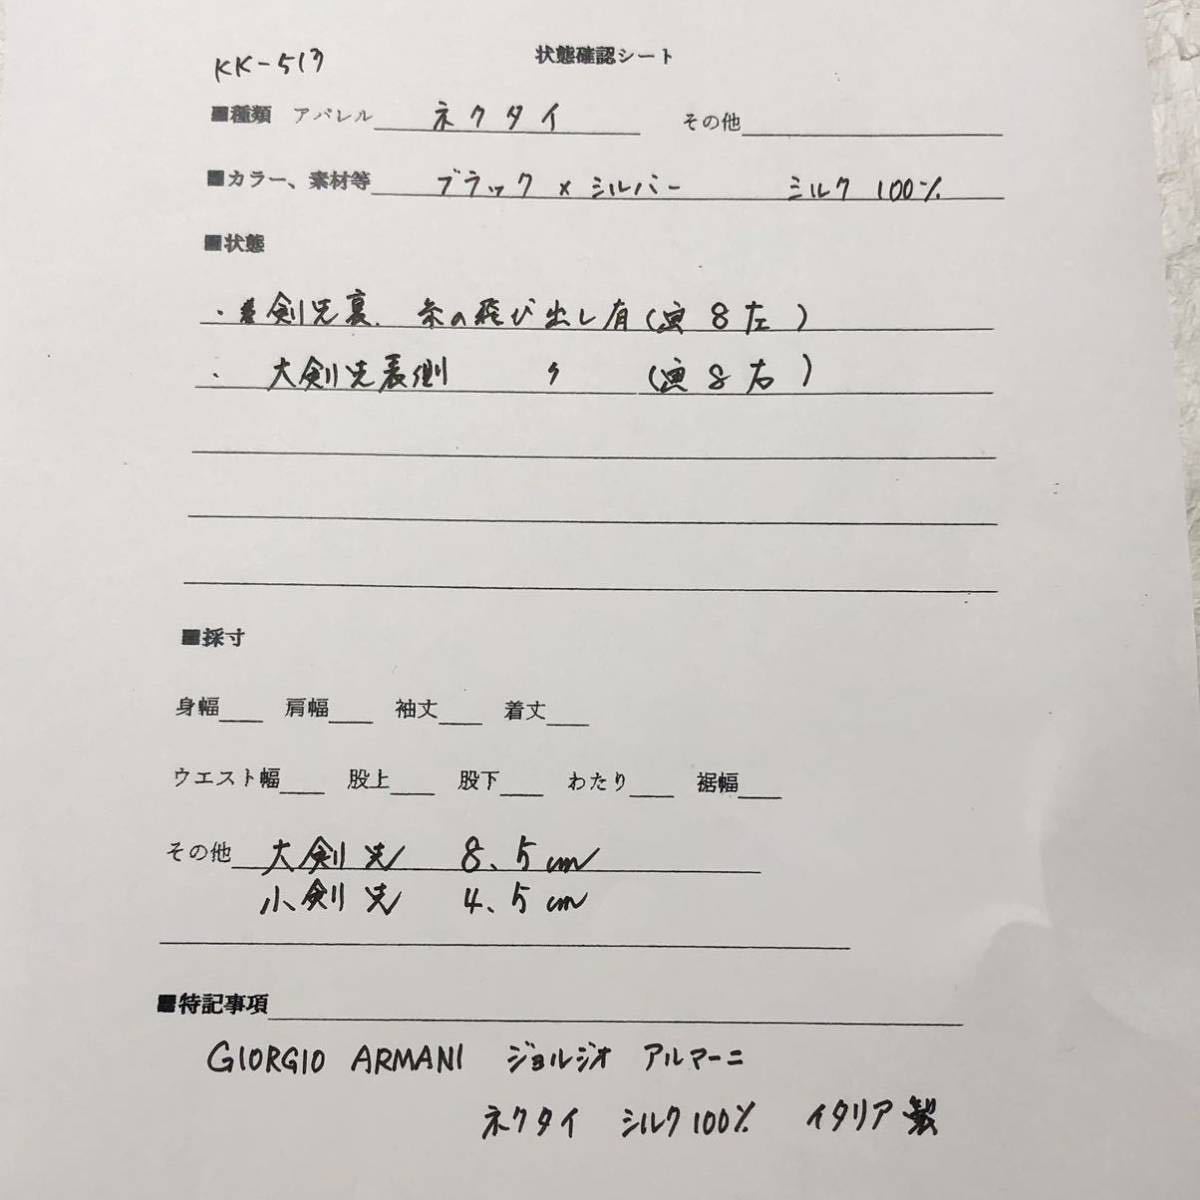 KK-517
状態確認シート
■種類 アパレル ネクタイ その他
■カラー、素材等 ブラック×シルバー シルク 100%
■状態
・剣先裏、糸の飛び出し有(画8左)
・大剣先表側 〃 (画8右)
■採寸
身幅 肩幅 袖丈 着丈
ウエスト幅 股上 股下 わたり 裾幅
その他 大剣先 8.5cm
小剣先 4.5cm
■特記事項
GIORGIO ARMANI ジョルジオ アルマーニ
ネクタイ シルク100% イタリア製